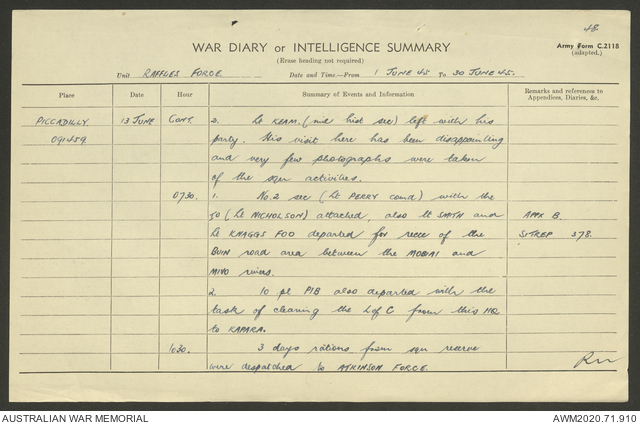 48
WAR DIARY or INTELLIGENCE SUMMARY
Army Form C.2118
(adapted.)
(Erase heading not required)
Unit RAFFLES FORCE Date and Time—From 1 JUNE 45 To 30 JUNE 45.
Place Date Hour Summary of Events and Information Remarks and references to Appendices, Diaries, &c.
PICCADILLY 13 JUNE CONT. 2. Lt KEAM. (mil hist sec) left with his
091459 party. His visit here has been disappointing
and very few photographs were taken
of the sqn activities.
0730. 1. No.2 sec (Lt PERRY comd) with the
50 (Lt NICHOLSON) attached, also Lt SMITH and APPX B.
Lt KNAGGS FOO departed for recce of the SITREP 378.
BUIN road area between the MOBIAI and
MIVO rivers.
2. 10 pl PIB also departed with the
task of clearing the L of C from this HQ
to KAPARA.
1030. 3 days rations from sqn reserve
were despatched to ATKINSON FORCE.
AUSTRALIAN WAR MEMORIAL
AWM2020.71.910